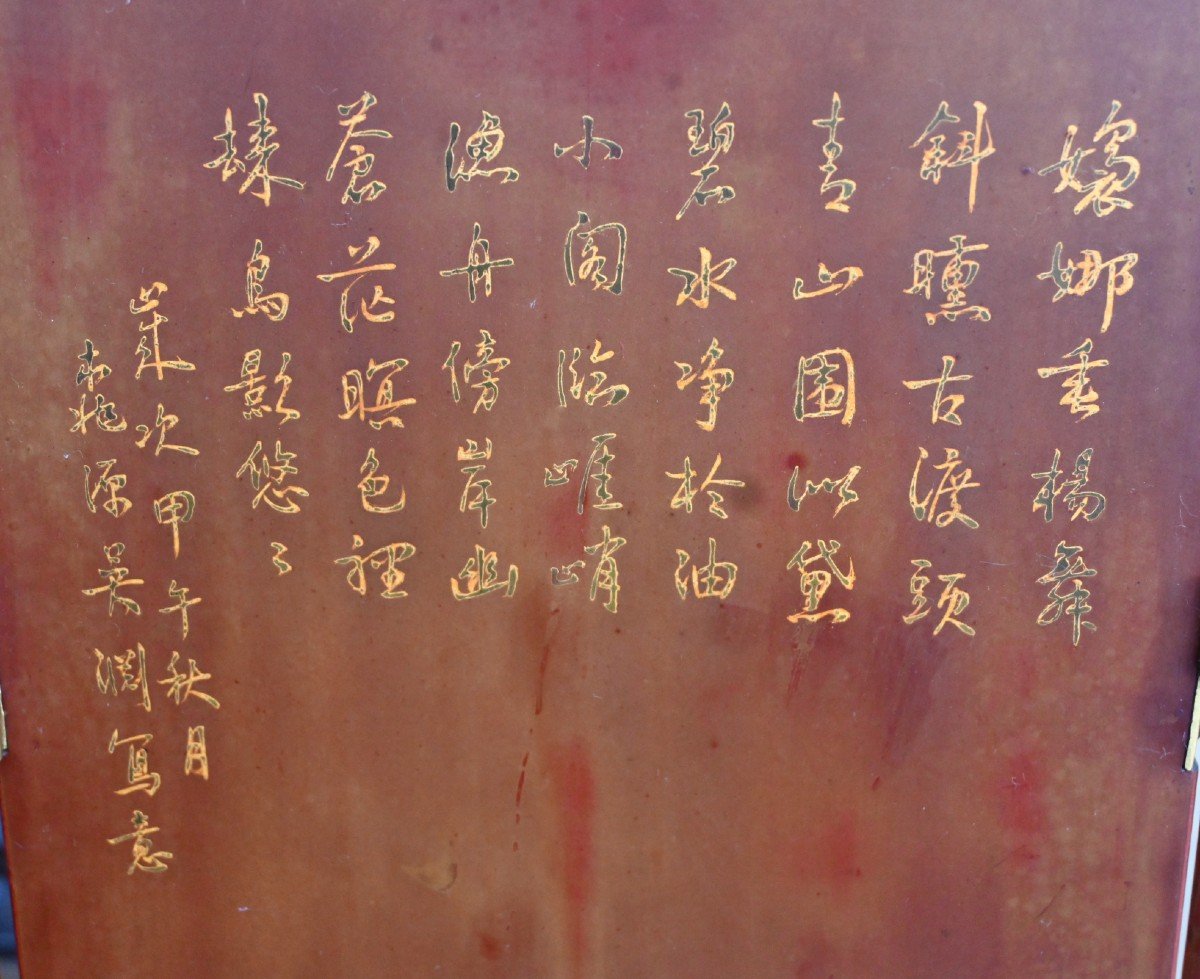 嬝娜垂楊舞
斜曛古渡頭
青山围似黛
碧水净於油
小阁臨崕峭
漁舟傍岸幽
蒼茫暝色裡
棲鳥影悠〻
崴次甲午秋月
桃源吴淵写意